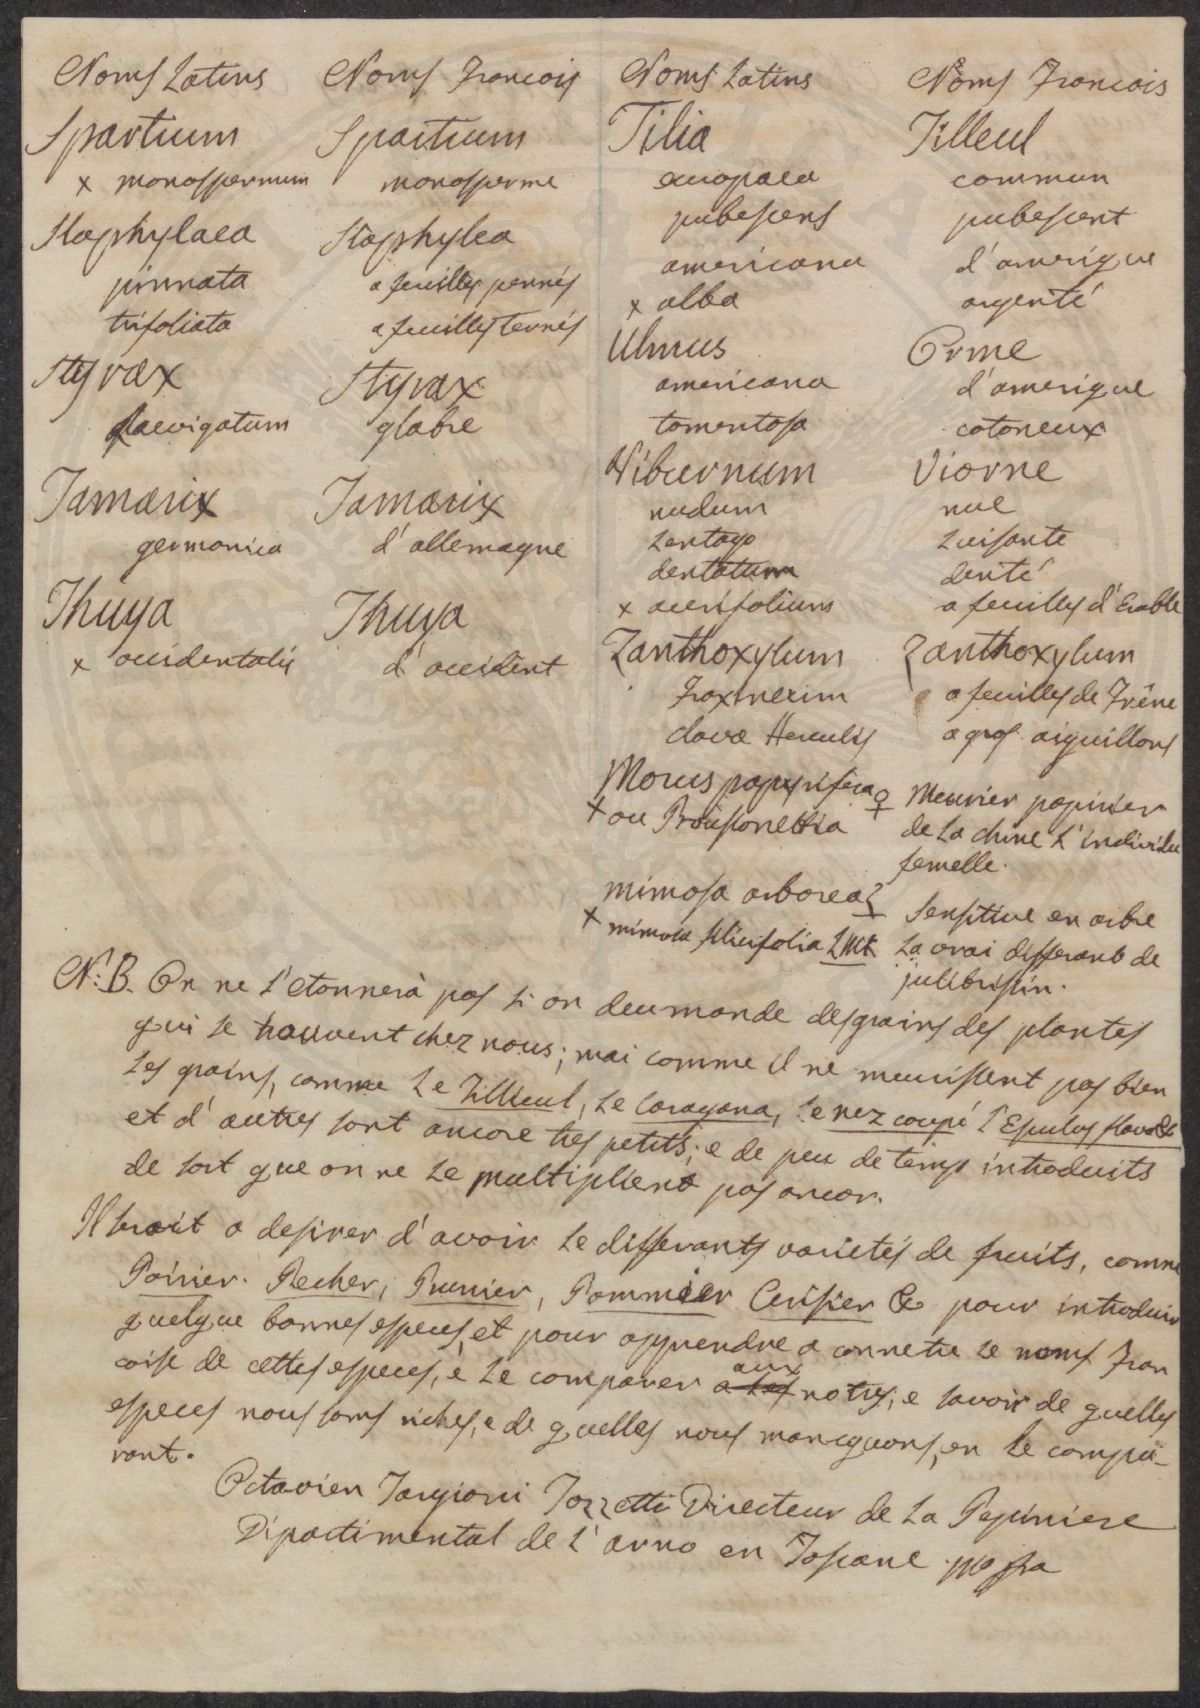 Noms Latins Noms Francois
Spartium Spartium
x monospermum monosperme
Staphylaea Staphylea
pinnata a feuilles pennés
trifoliata a feuilles ternés
Styrax Styrax
laevigatum glabre
Tamarix Tamarix
germanica d'allemagne
Thuya Thuya
x occidentalis d'occident
Noms Latins Noms Francois
Tilia Tilleul
europaea commun
pubescens pubescent
americana d'amerique
x alba argenté
Ulmus Orme
americana d'amerique
tomentosa cotoneux
Viburnum Viorne
nudum nue
Lentago Luisante
dentatum denté
x acerifolium a feuilles d'Erable
Zanthoxylum Zanthoxylum
Fraxineum a feuilles de Frêne
clava Herculis a gros aiguillons
Morus papyrifera ♀ Meurier papirier
x ou Brousonettia de La chine L'individu
femelle.
mimosa arborea Sensitive en arbre
x mimosa filicifolia LMK La vrai differant de
julibrissin.
N:B. On ne s'etonnerà pas si on deumande des grains des plantes
qui se trouvent chez nous; mai comme il ne meurissent pas bien
Les grains, comme Le Tillieul, Le Caragana, Le nez coupé l'
et d'autres sont ancore tres petits; e de peu de temps introduits
de sort que on ne Le multiplient pas ancor.
Il serait a desirer d'avoir Le differants varietés de fruits, comme
Poirier. Pecher, Prunier, Pommier Cerisier &c pour introduir
quelque bonnes especes, et pour apprendre a connetre Le noms Fran
coise de cettes especes, è Le comparer a Les aux notres, e savoir de quelles
especes nous soms riches, e de quelles nous manquons, en Le compa-
rant.
Octavien Targioni Tozzetti Directeur de La Pepiniere
Dipartimental de L'arno en Toscane mp̃ra